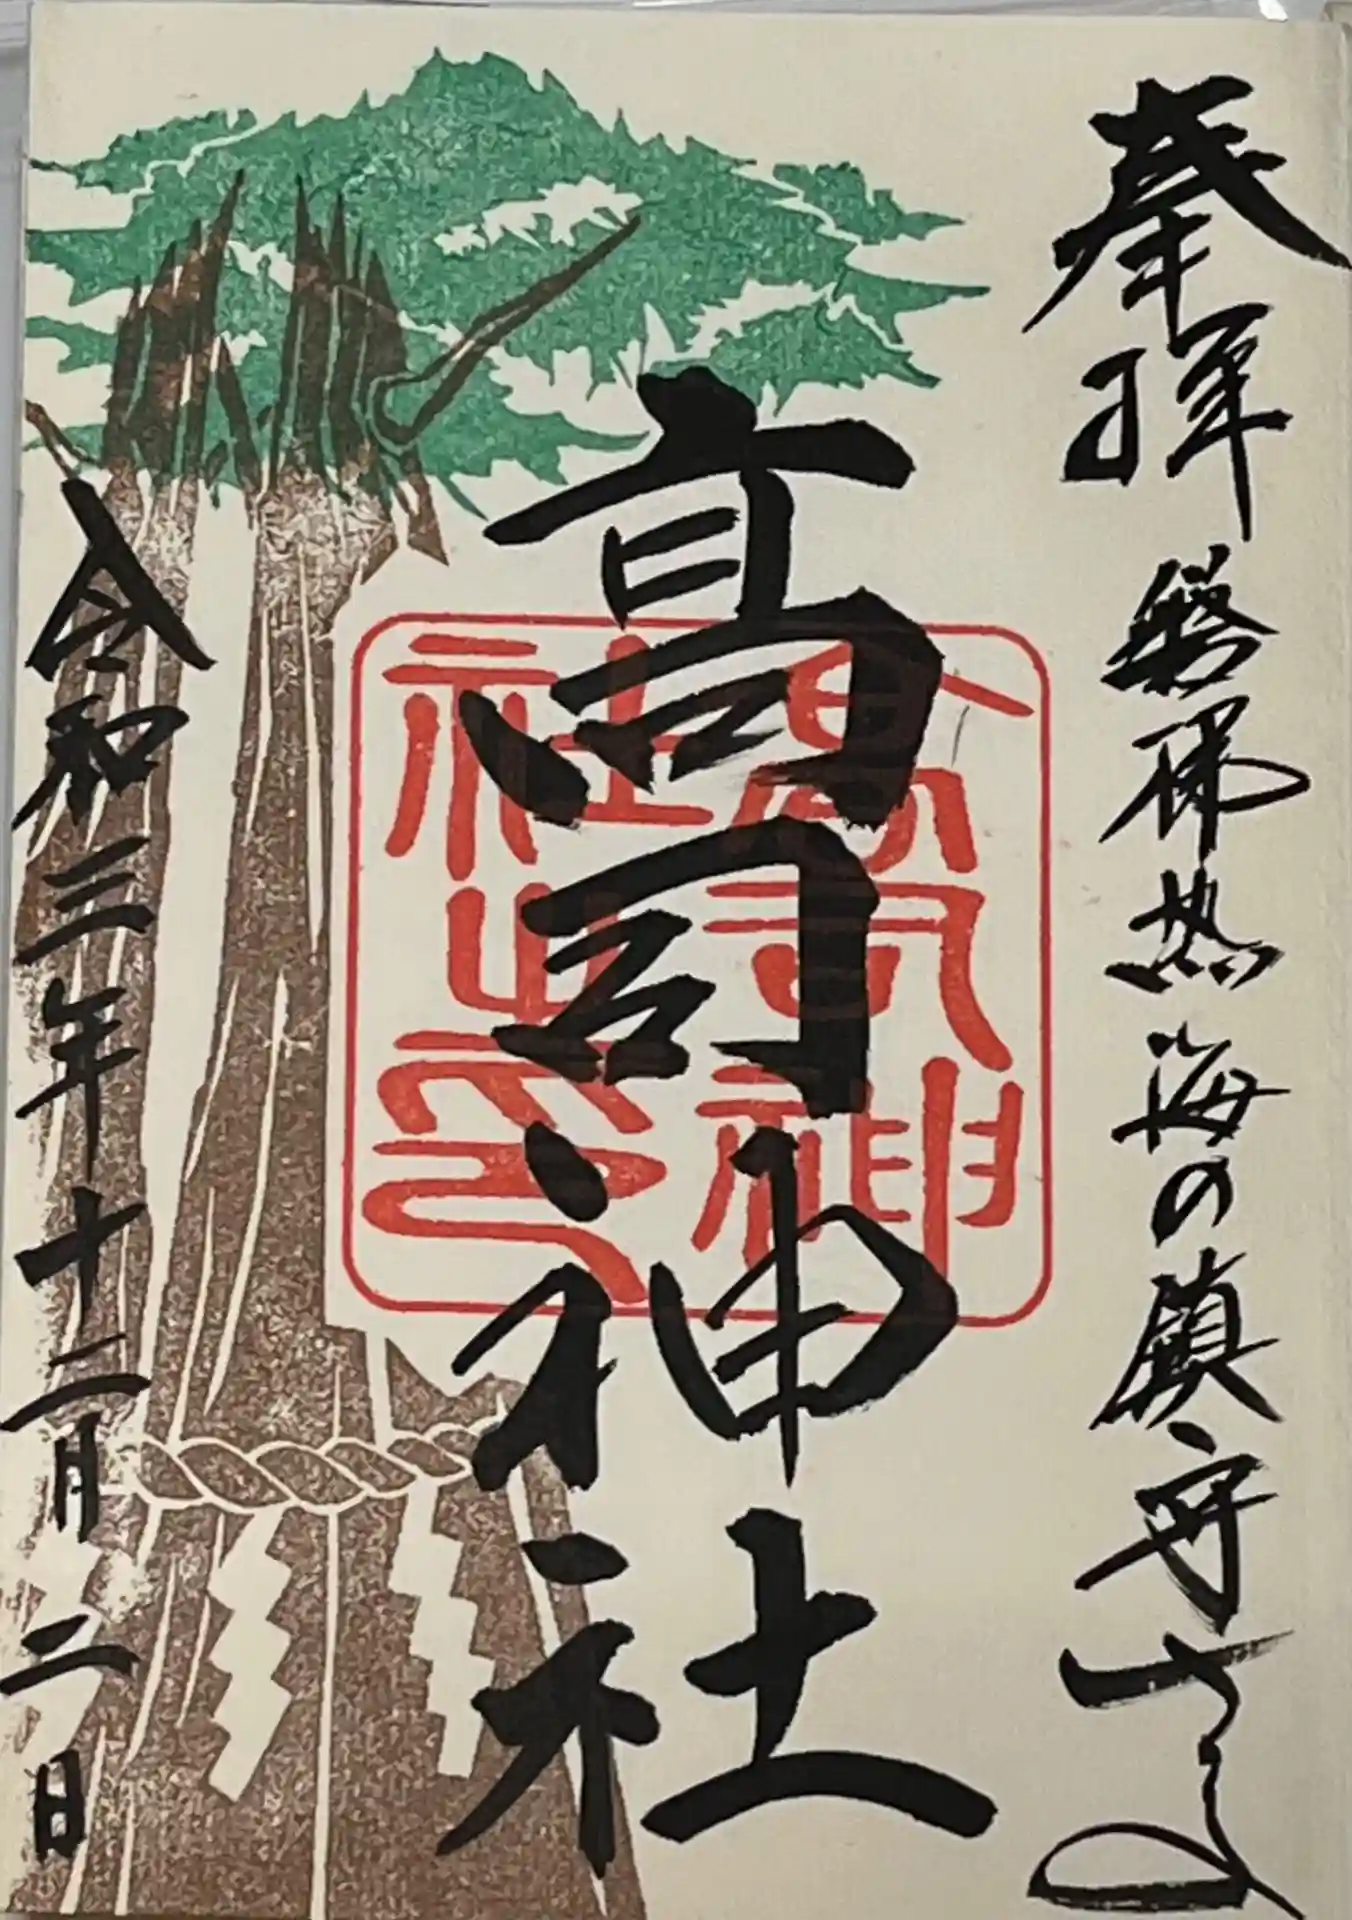 奉拝 磐梯熱海の鎮守
高司神社
高司神社之印
令和三年十二月二日